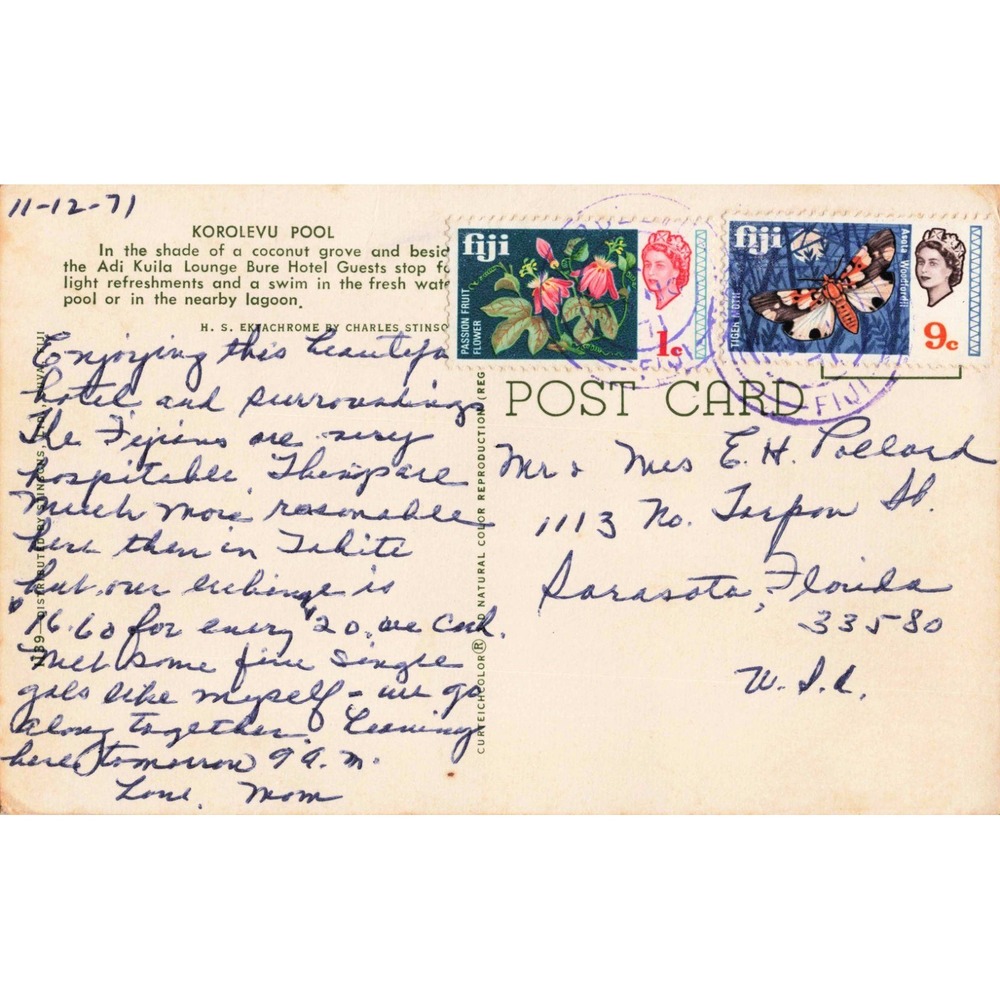 11-12-71
KOROLEVU POOL
In the shade of a coconut grove and besid
the Adi Kuila Lounge Bure Hotel Guests stop fo
light refreshments and a swim in the fresh wate
pool or in the nearby lagoon.
H. S. EKTACHROME BY CHARLES STINSO
Enjoying this beautifu
hotel and surroundings
The Fijians are very
hospitable. Things are
much more reasonable
here then in Tahite
but our exchange is
$16.60 for every $20. we cash.
Met some fine single
gals like myself - we go
along together. Leaving
here tomorrow 9 A.M.
Love, Mom
1139—DISTRIBUTED BY STINSONS, SUVA, FIJI
CURTEICHCOLOR® 3-D NATURAL COLOR REPRODUCTION (REG
fiji
PASSION FRUIT
FLOWER
1c
fiji
TIGER MOTH
Asota Woodfordii
9c
FIJI
FIJI
POST CARD
Mr & Mrs E. H. Pollard
1113 No. Tarpon St.
Sarasota, Florida
33580
U.S.A.